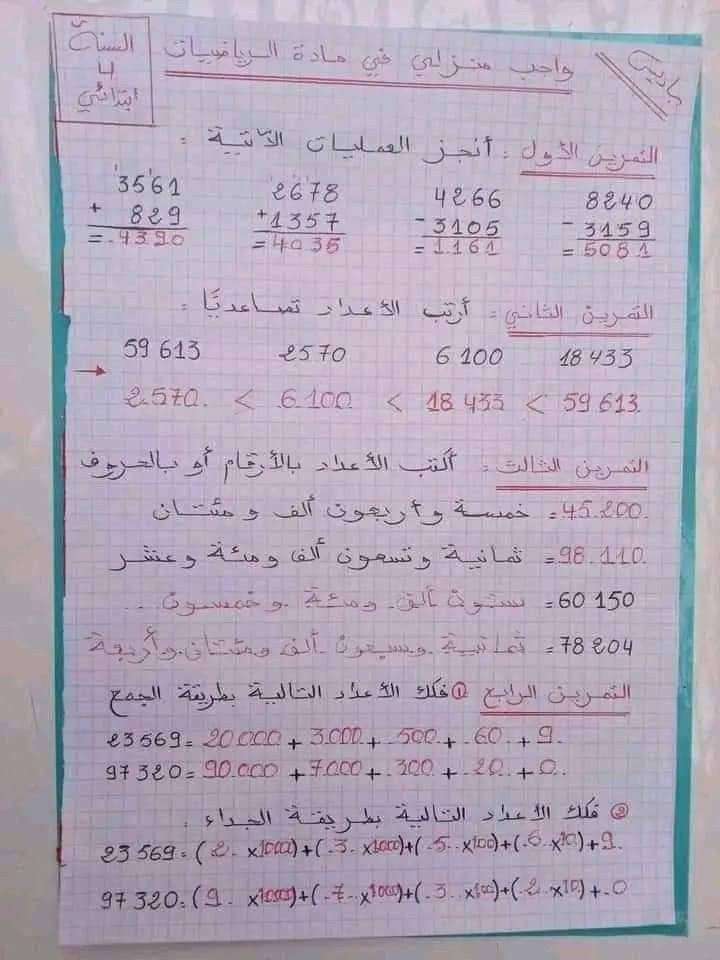 السنة
4
ابتدائي
واجب منزلي في مادة الرياضيات
التمرين الأول : أنجز العمليات الآتية :
3561 2678 4266 8240
+ 829 + 1357 - 3105 - 3159
= 4390 = 4035 = 1161 = 5081
التمرين الثاني : أرتب الأعداد تصاعديًا :
59 613 2570 6 100 18 433
→ 2.570 < 6.100 < 18 433 < 59 613
التمرين الثالث : أكتب الأعداد بالأرقام أو بالحروف
45.200 = خمسة وأربعون ألف ومئتان
98.110 = ثمانية وتسعون ألف ومئة وعشر
60 150 = ستون ألف ومئة وخمسون
78 204 = ثمانية وسبعون ألف ومئتان وأربعة
التمرين الرابع ① فكك الأعداد التالية بطريقة الجمع
23 569 = 20.000 + 3.000 + 500 + 60 + 9
97 320 = 90.000 + 7.000 + 300 + 20 + 0
② فكك الأعداد التالية بطريقة الجداء :
23 569 = (2 ×1000) + (3 ×1000) + (5 ×100) + (6 ×10) + 9
97 320 = (9 ×1000) + (7 ×1000) + (3 ×100) + (2 ×10) + 0